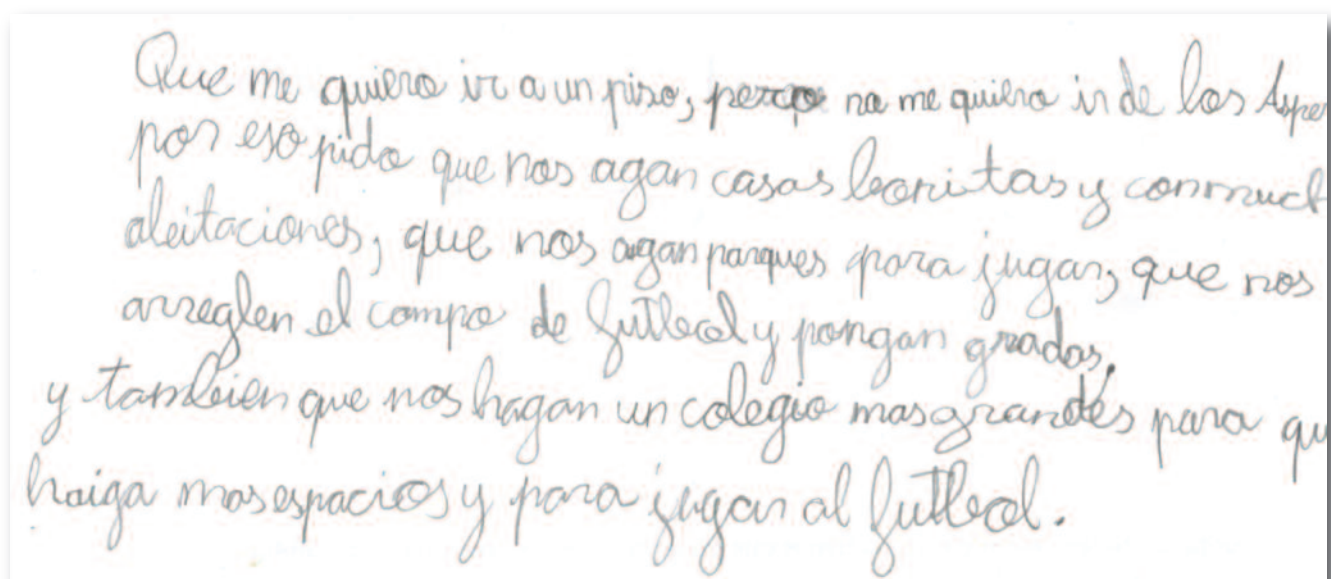 Que me quiero ir a un piso, pero no me quiero ir de los Aspe
por eso pido que nos agan casas bonitas y con much
abitaciones, que nos agan parques para jugar, que nos
arreglen el campo de futbol y pongan gradas,
y tambien que nos hagan un colegio mas grandes para qu
haiga mas espacios y para jugar al futbol.